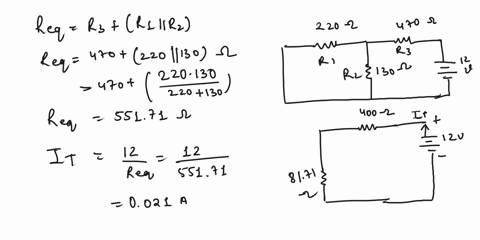 Req = R3 + (R1 || R2)
Req = 470 + (220 || 130) Ω
= 470 + (220·130 / 220+130)
Req = 551.71 Ω
IT = 12 / Req = 12 / 551.71
= 0.021 A
220 Ω
470 Ω
R1
R3
R2
130 Ω
12
V
400 Ω
It
+
12V
-
81.71
Ω